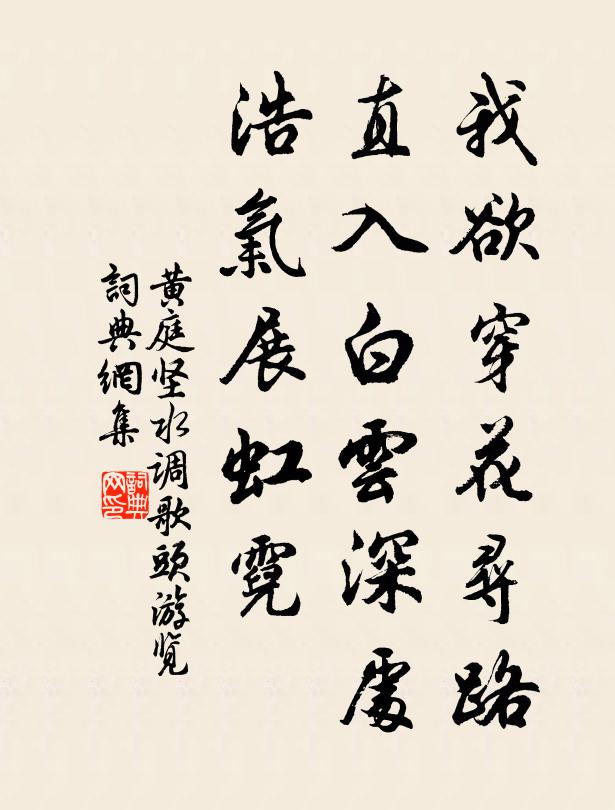 我欲穿花尋路
直入白雲深處
浩氣展虹霓
黄庭坚水调歌頭游览
詞典網集
詞典
网印